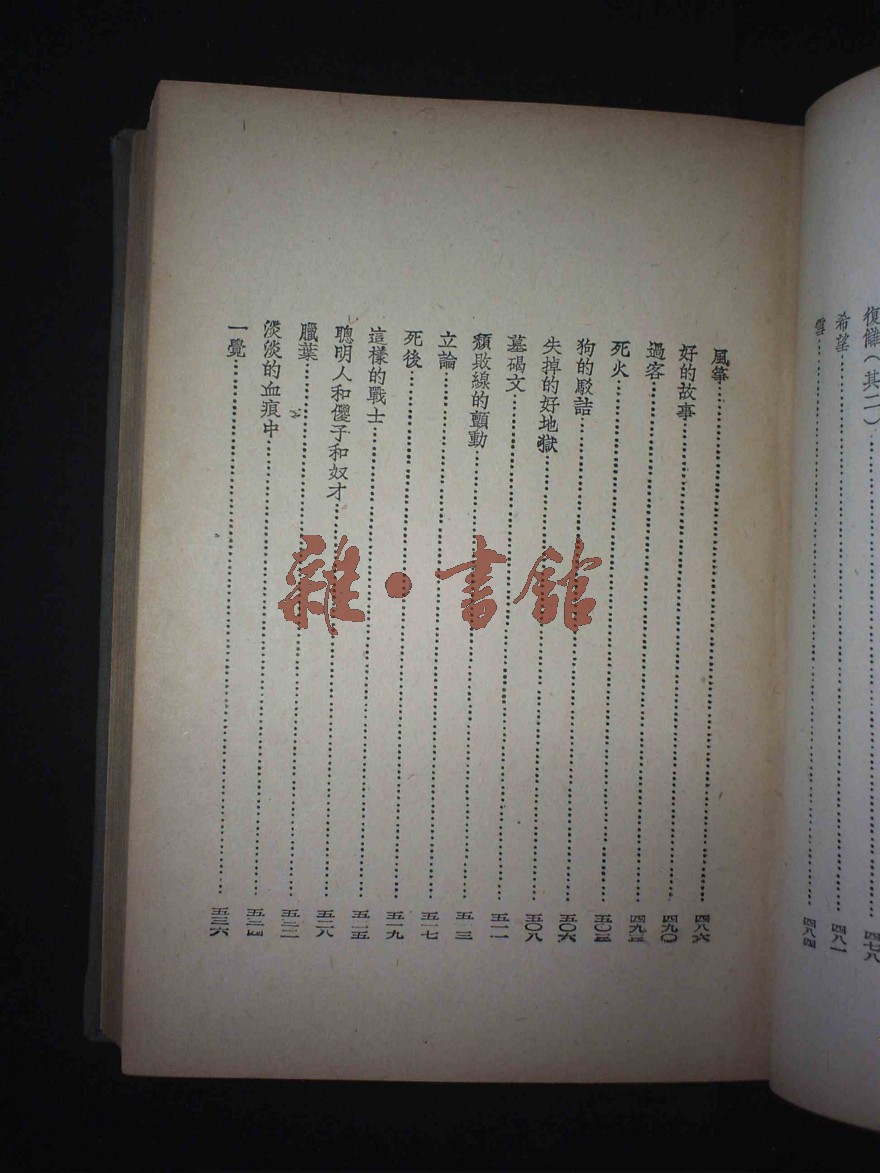 復讎（其二）……四七八
希望……四八一
雪……四八四
風箏……四八六
好的故事……四九〇
過客……四九三
死火……五〇三
狗的駁詰……五〇六
失掉的好地獄……五〇八
墓碣文……五一一
頹敗線的顫動……五一三
立論……五一七
死後……五一九
這樣的戰士……五二五
聰明人和儍子和奴才……五二八
臘葉……五三二
淡淡的血痕中……五三四
一覺……五三六
雜·書館